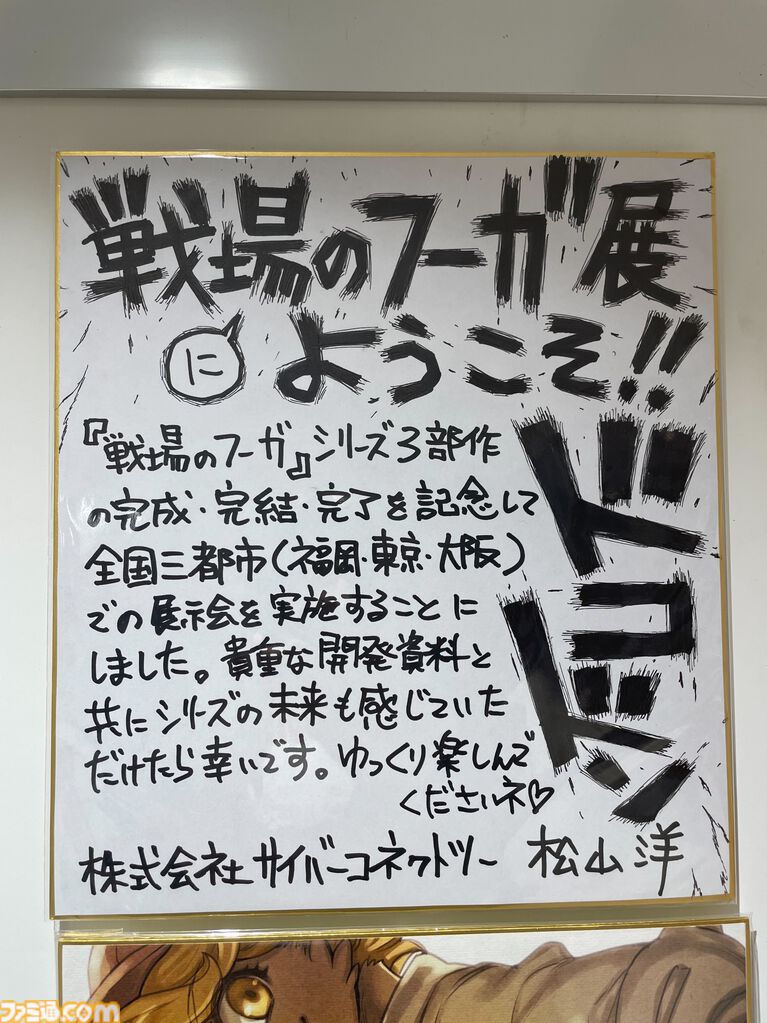 戦場のフーガ展
に ようこそ!!
『戦場のフーガ』シリーズ3部作
の完成・完結・完了を記念して
全国三都市(福岡・東京・大阪)
での展示会を実施することに
しました。貴重な開発資料と
共にシリーズの未来も感じていた
だけたら幸いです。ゆっくり楽しんで
くださいネ♡
ドドン
株式会社サイバーコネクトツー 松山洋
ファミ通.com